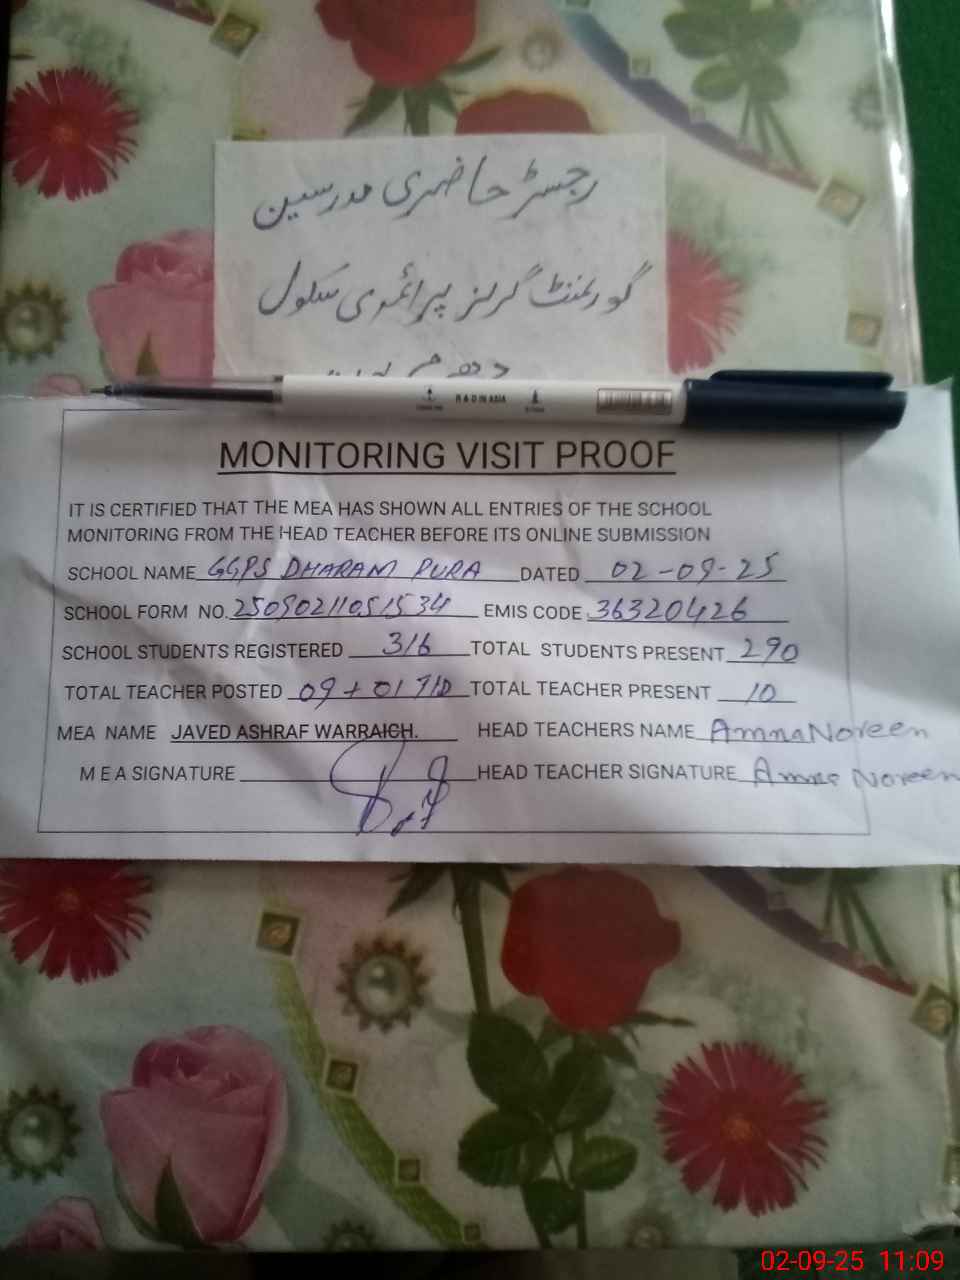 رجسٹر حاضری مدرسین
گورنمنٹ گرلز پرائمری سکول
R & D IN ASIA
MONITORING VISIT PROOF
IT IS CERTIFIED THAT THE MEA HAS SHOWN ALL ENTRIES OF THE SCHOOL
MONITORING FROM THE HEAD TEACHER BEFORE ITS ONLINE SUBMISSION
SCHOOL NAME GGPS DHARAM PURA DATED 02-09-25
SCHOOL FORM NO. 25090211051534 EMIS CODE 36320426
SCHOOL STUDENTS REGISTERED 316 TOTAL STUDENTS PRESENT 290
TOTAL TEACHER POSTED 09 + 01 TOTAL TEACHER PRESENT 10
MEA NAME JAVED ASHRAF WARRAICH. HEAD TEACHERS NAME Amna Noreen
M E A SIGNATURE HEAD TEACHER SIGNATURE Amna Noreen
02-09-25 11:09